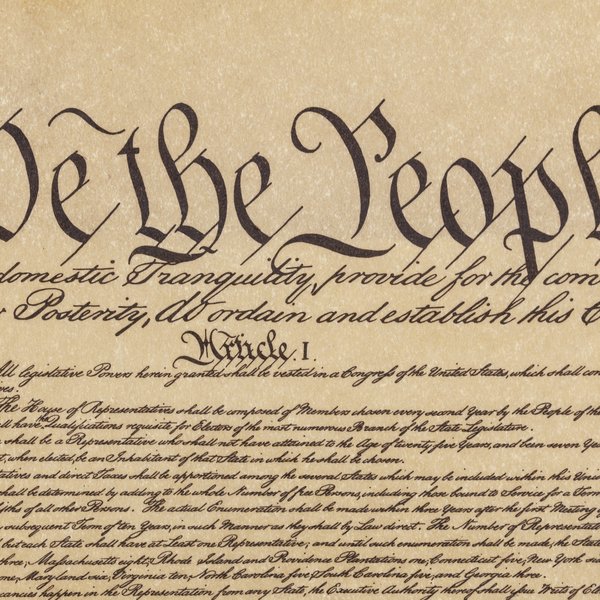 We the People
domestic Tranquility, provide for the com
Posterity, do ordain and establish this C
Article. I.
All legislative Powers herein granted shall be vested in a Congress of the United States, which shall con
ives.
The House of Representatives shall be composed of Members chosen every second Year by the People of the
all have Qualifications requisite for Electors of the most numerous Branch of the State Legislature.
shall be a Representative who shall not have attained to the Age of twenty five Years, and been seven Yea
t, when elected, be an Inhabitant of that State in which he shall be chosen.
tatives and direct Taxes shall be apportioned among the several States which may be included within this Unio
shall be determined by adding to the whole Number of free Persons, including those bound to Service for a Term
fths of all other Persons. The actual Enumeration shall be made within three Years after the first Meeting of
subsequent Term of ten Years, in such Manner as they shall by Law direct. The Number of Representativ
but each State shall have at Least one Representative; and until such enumeration shall be made, the State
three, Massachusetts eight, Rhode Island and Providence Plantations one, Connecticut five, New York six
one, Maryland six, Virginia ten, North Carolina five, South Carolina five, and Georgia three.
vacancies happen in the Representation from any State, the Executive Authority thereof shall issue Writs of Ele